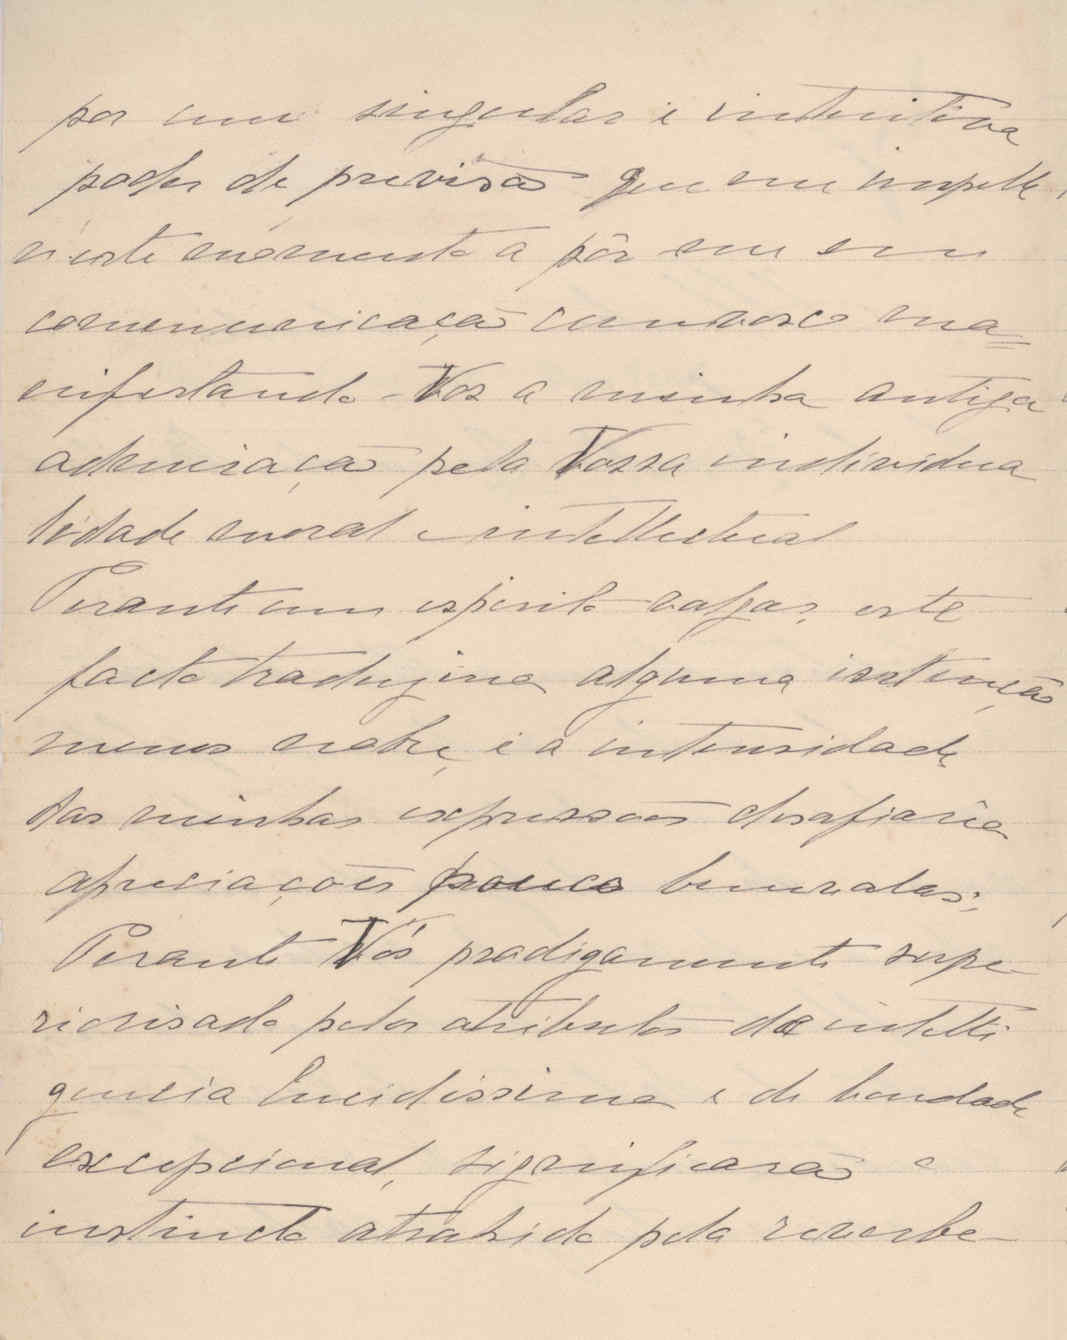 por um singular e intuitiva
poder de previsão que me impelle,
n'este momento a pôr me em
communicação comvosco ma=
nifestando-Vos a minha antiga
admiração pela Vossa individua
lidade moral e intellectual
Perante um espirito vulgar, este
facto traduziria alguma intenção
menos nobre, e a intensidade
das minhas expressões desafiaria
apreciações pouco benevolas;
Perante Vós prodigamente supe-
riorisado pelos atributos de intelli
gencia lucidissima e de bondade
excepcional, significarão o
instincto atrahido pela reverbe-